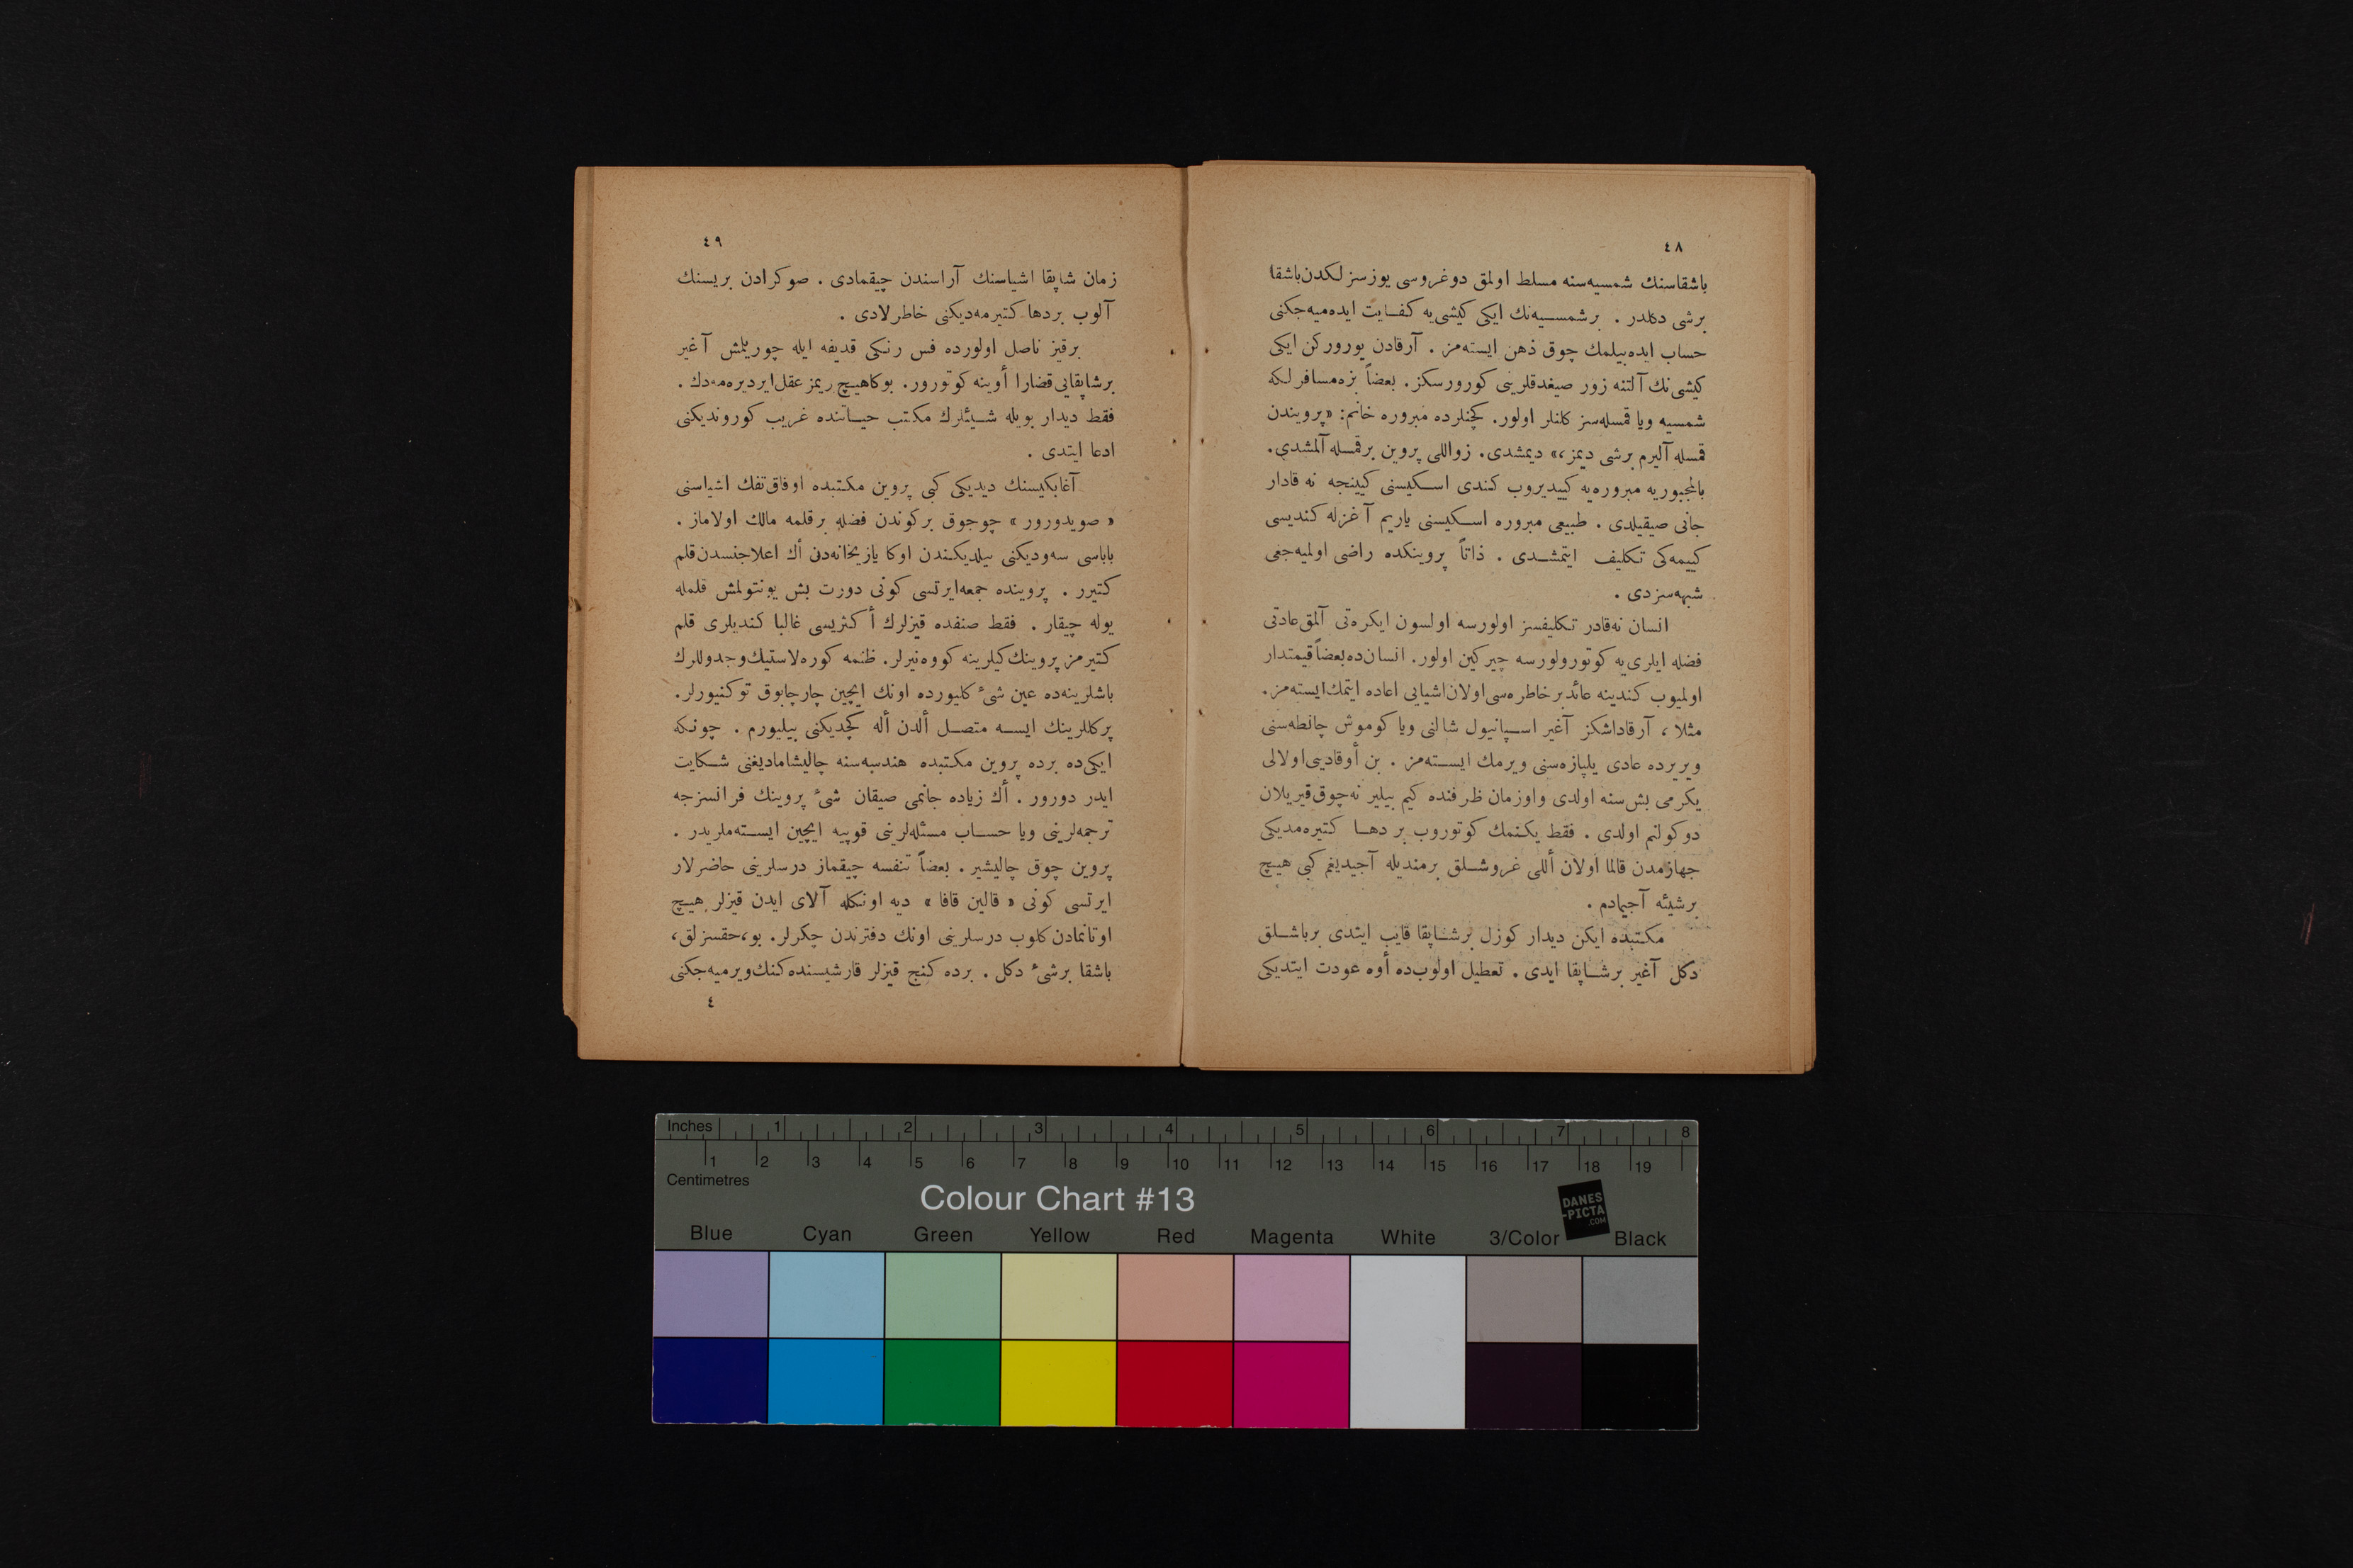 ٤٨
باشقاسنك شمسیه‌سنه مسلط اولمق دوغروسی یوزسزلكدن باشقا
برشی دكلدر . برشمسیه‌نك ایكی كیشی‌یه كفایت ایده‌میه‌جكنی
حساب ایده‌بیلمك چوق ذهن ایسته‌مز . آرقادن یوروركن ایكی
كیشی‌نك آلتنه زور صیغدقلرینی كورورسكز . بعضاً بزه مسافرلكه
شمسیه ویا قمسله‌سز كلنلر اولور. كچنلرده مبروره خانم: «پرویندن
قمسله آلیرم برشی دیمز،» دیمشدی. زواللی پروین برقمسله آلمشدی.
بالمجبوریه مبروره‌یه كییدیروب كندی اسكیسنی كیینجه نه قادار
جانی صیقیلدی . طبیعی مبروره اسكیسنی یاریم آغزله كندیسی
كییمه‌كی تكلیف ایتمشدی . ذاتاً پروینكده راضی اولمیه‌جغی
شبهه‌سزدی .
انسان نه‌قادر تكلیفسز اولورسه اولسون ایكره‌تی آلمق عادتی
فضله ایلری‌یه كوتورولورسه چیركین اولور. انسان‌ده بعضاً قیمتدار
اولمیوب كندینه عائد برخاطره‌سی اولان اشیایی اعاده ایتمك ایسته‌مز.
مثلا ، آرقاداشكز آغیر اسپانیول شالنی ویا كوموش چانطه‌سنی
ویریرده عادی یلپازه‌سنی ویرمك ایسته‌مز . بن أوقادیی اولالی
یكرمی بش سنه اولدی واوزمان ظرفنده كیم بیلیر نه‌چوق قیریلان
دوكولنم اولدی . فقط یكنمك كوتوروب بر دها كتیره‌مدیكی
جهازمدن قالما اولان أللی غروشلق برمندیله آجیدیغم كبی هیچ
برشیئه آجیمادم .
مكتبده ایكن دیدار كوزل برشاپقا قایب ایتدی برباشلق
دكل آغیر برشاپقا ایدی . تعطیل اولوب‌ده أوه عودت ایتدیكی
٤٩
زمان شاپقا اشیاسنك آراسندن چیقمادی . صوكرادن بریسنك
آلوب بردها كتیرمه‌دیكنی خاطرلادی .
برقیز ناصل اولورده فس رنكی قدیفه ایله چوریلمش آغیر
برشاپقایی قضارا أوینه كوتورور. بوكاهیچ ریمز عقل ایردیره‌مه‌دك .
فقط دیدار بویله شیئلرك مكتب حیاتنده غریب كوروندیكنی
ادعا ایتدی .
آغابكیسنك دیدیكی كبی پروین مكتبده اوفاق تفك اشیاسنی
« صویدورور » چوجوق بركوندن فضله برقلمه مالك اولاماز .
باباسی سه‌ودیكنی بیلدیكندن اوكا یازیخانه‌دن أك اعلاجنسدن قلم
كتیرر . پروینده جمعه‌ایرتسی كونی دورت بش یونتولمش قلمله
یوله چیقار . فقط صنفده قیزلرك أكثریسی غالبا كندیلری قلم
كتیرمز پروینك‌كیلرینه كووه‌نیرلر. ظنمه كوره لاستیك وجدوللرك
باشلرینه‌ده عین شیء كلیورده اونك ایچین چارچابوق توكنیورلر.
پركللرینك ایسه متصل ألدن أله كچدیكنی بیلیورم . چونكه
ایكی‌ده برده پروین مكتبده هندسه‌سنه چالیشامادیغنی شكایت
ایدر دورور . أك زیاده جانمی صیقان شیء پروینك فرانسزجه
ترجمه‌لرینی ویا حساب مسئله‌لرینی قوپیه ایچین ایسته‌ملریدر .
پروین چوق چالیشیر . بعضاً تنفسه چیقماز درسلرینی حاضرلار
ایرتسی كونی « قالین قافا » دیه اونكله آلای ایدن قیزلر هیچ
اوتانمادن كلوب درسلرینی اونك دفترندن چكرلر. بو، حقسزلق،
باشقا برشیء دكل . برده كنج قیزلر قارشیسنده كنك ویرمیه‌جكنی
٤
Inches 1 2 3 4 5 6 7 8
1 2 3 4 5 6 7 8 9 10 11 12 13 14 15 16 17 18 19
Centimetres
Colour Chart #13
DANES
-PICTA
.COM
Blue Cyan Green Yellow Red Magenta White 3/Color Black